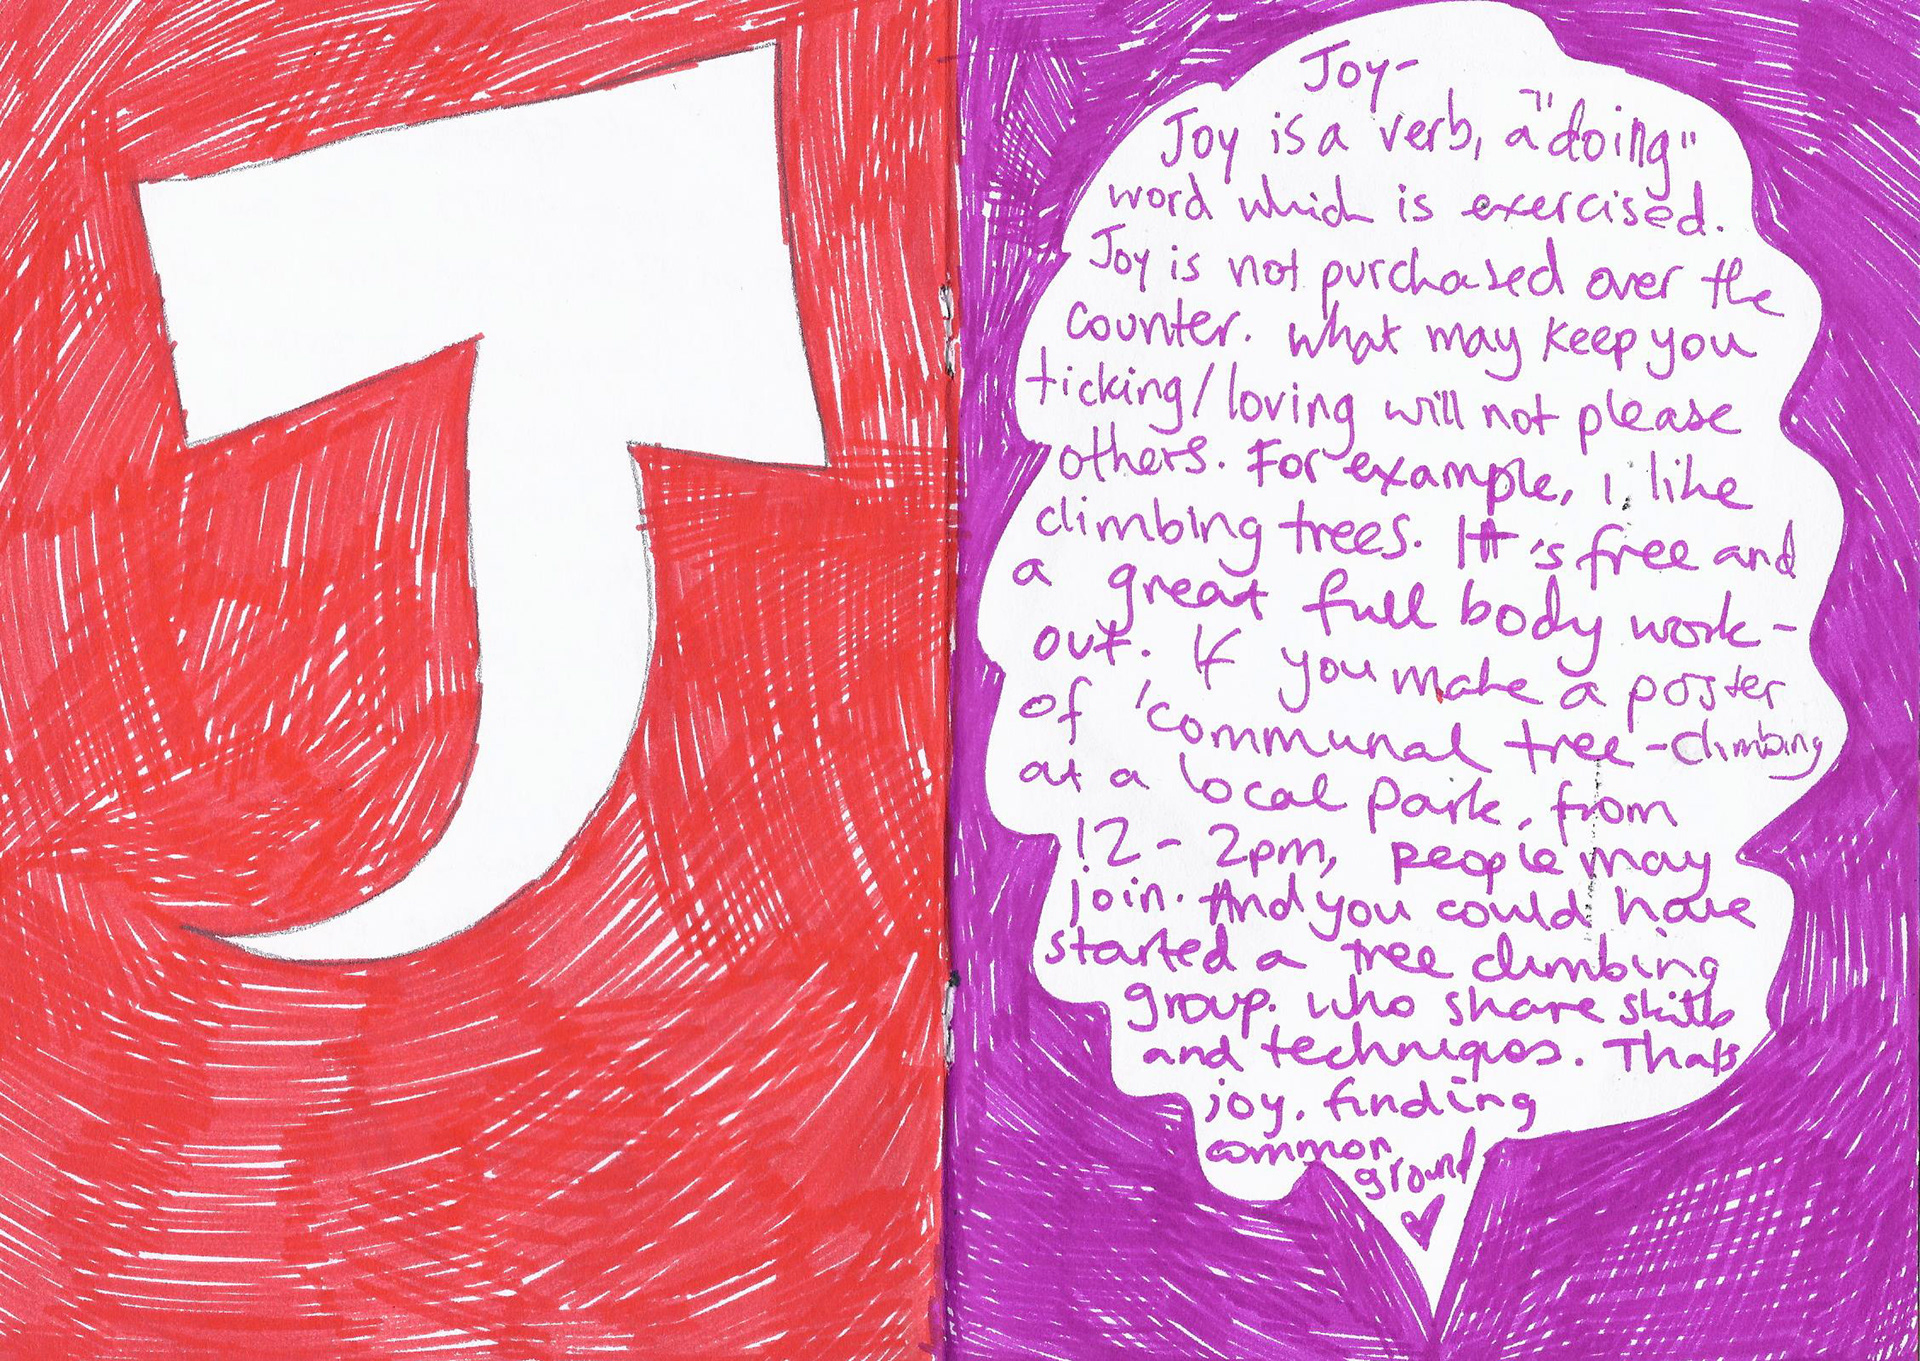 J
Joy-
Joy is a verb, a "doing"
word which is exercised.
Joy is not purchased over the
counter. What may keep you
ticking/loving will not please
others. For example, i like
climbing trees. It's free and
a great full body work-
out. If you make a poster
of 'communal tree-climbing
at a local park, from
12 - 2pm, people may
join. And you could have
started a tree climbing
group. who share skills
and techniques. Thats
joy. finding
common
ground